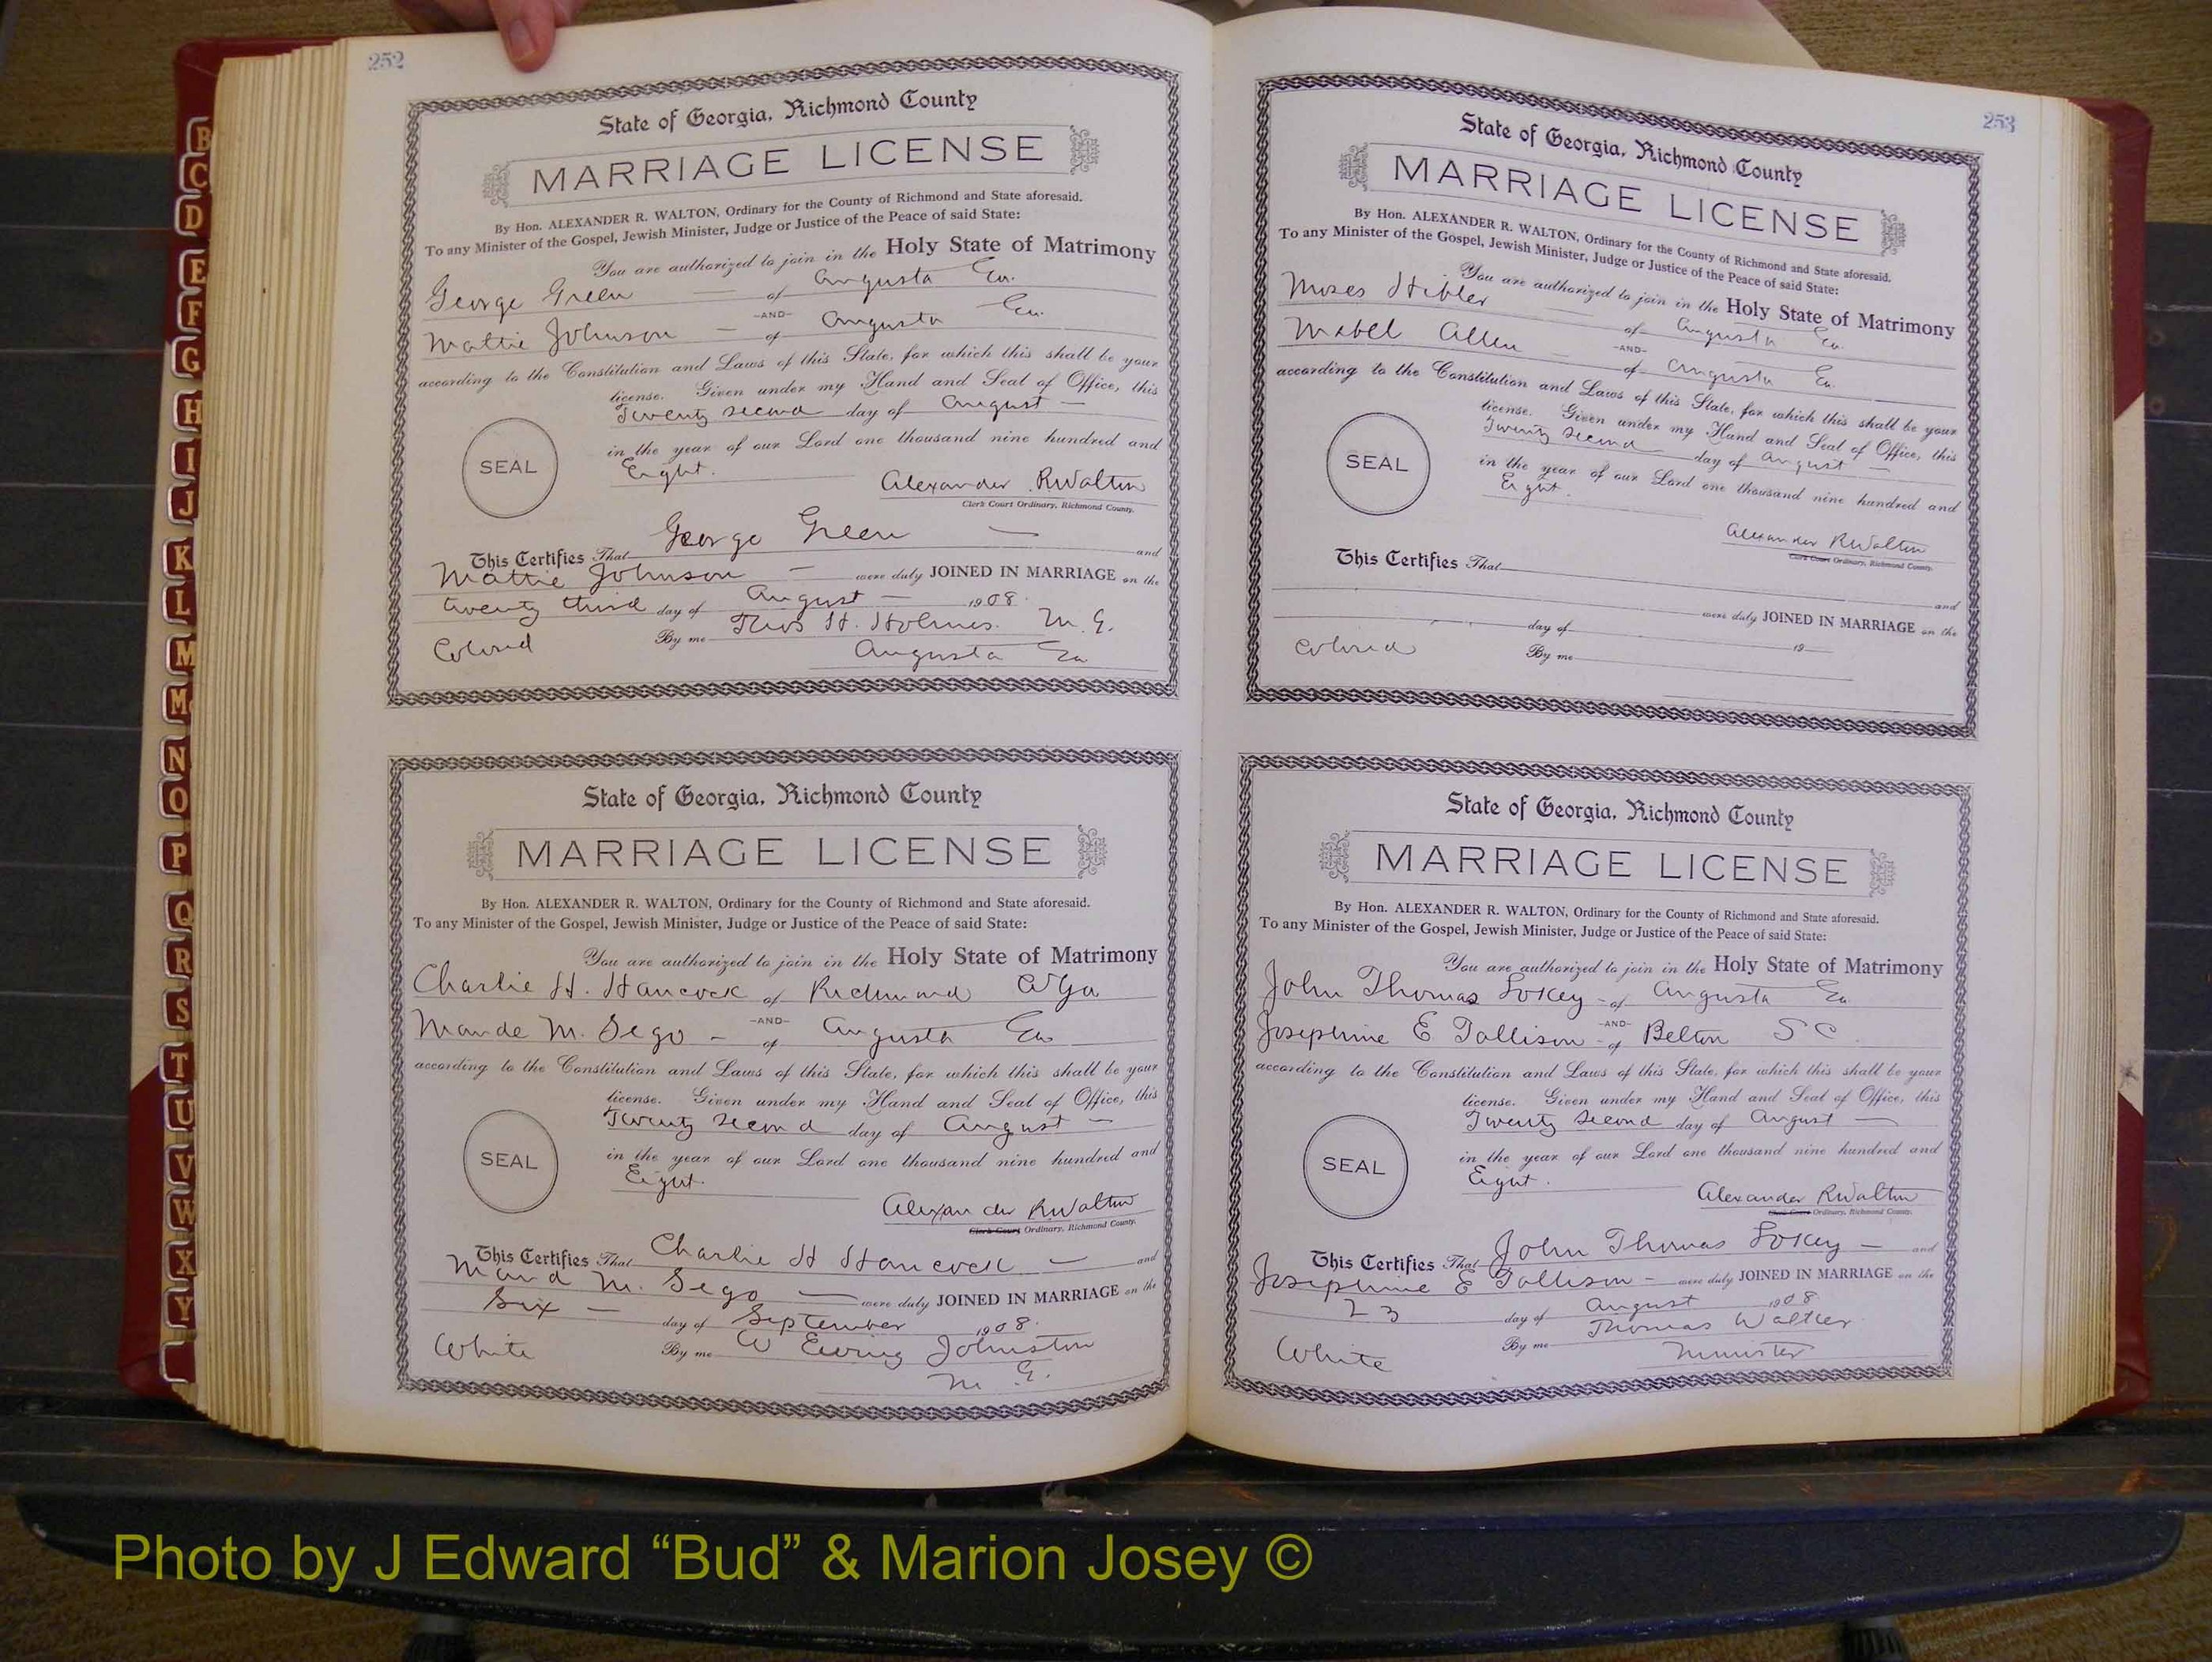 252
State of Georgia, Richmond County
MARRIAGE LICENSE
By Hon. ALEXANDER R. WALTON, Ordinary for the County of Richmond and State aforesaid.
To any Minister of the Gospel, Jewish Minister, Judge or Justice of the Peace of said State:
You are authorized to join in the Holy State of Matrimony
George Green — of Augusta Ga.
-AND-
Mattie Johnson — of Augusta Ga.
according to the Constitution and Laws of this State, for which this shall be your
license. Given under my Hand and Seal of Office, this
Twenty second day of August —
in the year of our Lord one thousand nine hundred and
SEAL
Eight.
Alexander R Walton
Clerk Court Ordinary, Richmond County.
This Certifies That George Green — and
Mattie Johnson — were duly JOINED IN MARRIAGE on the
twenty third day of August — 1908.
Colored By me Thos H. Holmes. M. G.
Augusta Ga
State of Georgia, Richmond County
MARRIAGE LICENSE
By Hon. ALEXANDER R. WALTON, Ordinary for the County of Richmond and State aforesaid.
To any Minister of the Gospel, Jewish Minister, Judge or Justice of the Peace of said State:
You are authorized to join in the Holy State of Matrimony
Charlie H. Hancock of Richmond Co Ga
-AND-
Maude M. Sego — of Augusta Ga
according to the Constitution and Laws of this State, for which this shall be your
license. Given under my Hand and Seal of Office, this
Twenty second day of August —
in the year of our Lord one thousand nine hundred and
SEAL
Eight.
Alexander R Walton
Clerk Court Ordinary, Richmond County.
This Certifies That Charlie H Hancock — and
Maud M. Sego — were duly JOINED IN MARRIAGE on the
Six — day of September 1908.
White By me W Ewing Johnston
M. G.
253
State of Georgia, Richmond County
MARRIAGE LICENSE
By Hon. ALEXANDER R. WALTON, Ordinary for the County of Richmond and State aforesaid.
To any Minister of the Gospel, Jewish Minister, Judge or Justice of the Peace of said State:
You are authorized to join in the Holy State of Matrimony
Moses Hibler — of Augusta Ga.
-AND-
Mabel Allen — of Augusta Ga.
according to the Constitution and Laws of this State, for which this shall be your
license. Given under my Hand and Seal of Office, this
Twenty second day of August —
in the year of our Lord one thousand nine hundred and
SEAL
Eight.
Alexander R Walton
Clerk Court Ordinary, Richmond County.
This Certifies That and
were duly JOINED IN MARRIAGE on the
day of 19
Colored By me
State of Georgia, Richmond County
MARRIAGE LICENSE
By Hon. ALEXANDER R. WALTON, Ordinary for the County of Richmond and State aforesaid.
To any Minister of the Gospel, Jewish Minister, Judge or Justice of the Peace of said State:
You are authorized to join in the Holy State of Matrimony
John Thomas Lokey - of Augusta Ga
-AND-
Josephine E Tollison - of Belton S C.
according to the Constitution and Laws of this State, for which this shall be your
license. Given under my Hand and Seal of Office, this
Twenty second day of August —
in the year of our Lord one thousand nine hundred and
SEAL
Eight.
Alexander R Walton
Clerk Court Ordinary, Richmond County.
This Certifies That John Thomas Lokey — and
Josephine E Tollison - were duly JOINED IN MARRIAGE on the
23 day of August 1908
White By me Thomas Walker
Minister
B
C
D
E
F
G
H
I
J
K
L
M
Mc
N
O
P
Q
R
S
T
U
V
W
X
Y
Photo by J Edward “Bud” & Marion Josey ©